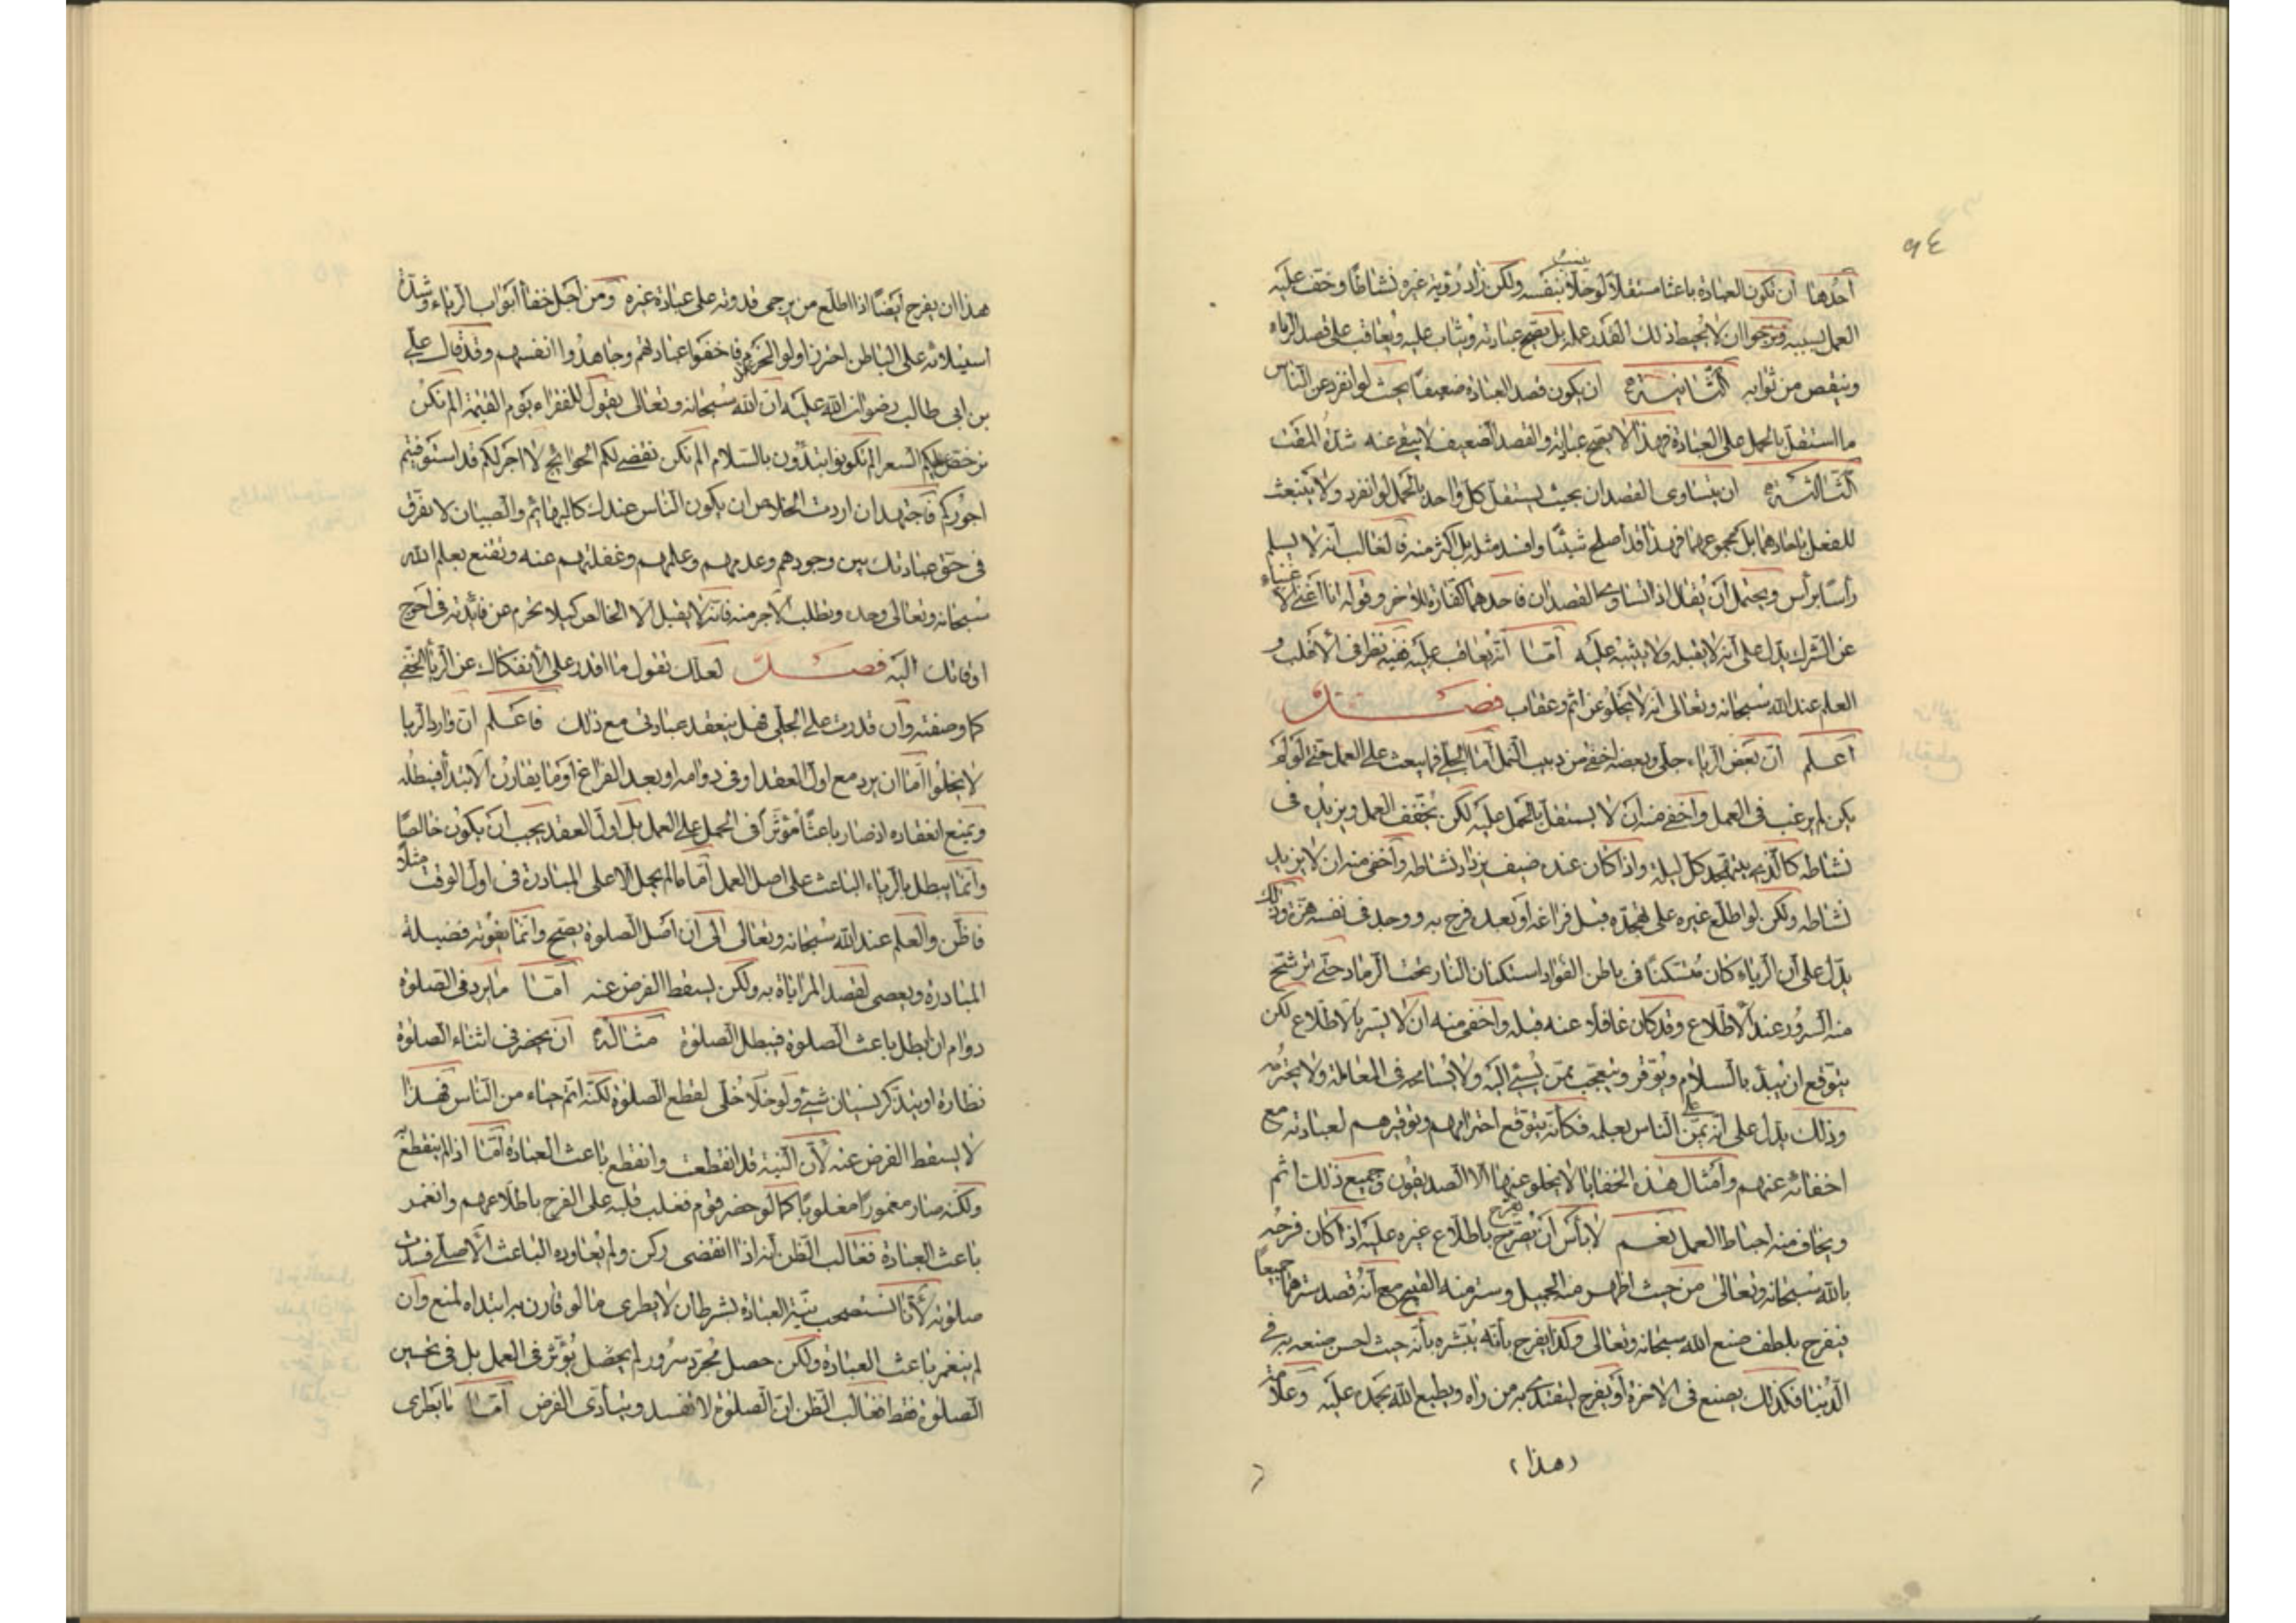 ٩٤
أحدها ان تكون العبادة باعثا مستقلا لو خلا بنفسه ولكن زاد رؤية غيره نشاطا وخف عليه
العمل بسببه فنرجوا ان لا يحبط ذلك القدر عمله بل يصح عبادته ويثاب عليه ويعاقب على قصد الرياء
وينقص من ثوابه الثانية ان يكون قصد العبادة ضعيفا بحيث لو انفرد عن الناس
ما استقل بالحمل على العبادة فهذا لا يصح عبادته والقصد الضعيف لا ينفي عنه شدة المقت
الثالثة ان يتساوى القصدان بحيث يستقل كل واحد بالحمل لو انفرد ولا ينبعث
للفعل باحادهما بل بمجموعهما فهذا قد أصلح شيئا وافسد مثله بل اكثر منه فالغالب انه لا يسلم
رأسا برأس ويحتمل أن يقال اذا تساوى القصدان فاحدهما كفارة للاخر وقوله انا أغنى الاغنياء
عن الشرك يدل على أنه لا يقبله ولا يثيبه عليه أمّا أنه يعاقب عليه ففيه نظر في الاغلب و
العلم عند الله سبحانه وتعالى انه لا يخلو عن اثم وعقاب فصل
اعلم أن بعض الرياء جلي وبعضه اخفى من دبيب النمل أما الجلي فما يبعث على العمل حتى لو لم
يكن لم يرغب في العمل واخفى منه ان لا يستقل بالحمل عليه لكن يخفف العمل ويزيد في
نشاطه كالذي يتهجد كل ليلة واذا كان عنده ضيف يزداد نشاطه وأخفى منه ان لا يزيد
نشاطه ولكن لو اطلع غيره على تهجده قبل فراغه أو بعد فرح به ووجد في نفسه هزة وذلك
يدل على أن الرياء كان مستكنا في باطن الفؤاد استكنان النار تحت الرماد حتى ترشح
منه السرور عند الاطلاع وقد كان غافلا عنه قبله واخفى منه ان لا يسر بالاطلاع لكن
يتوقع ان يبدأ بالسلام ويوقر ويتعجب ممن يسئ اليه ولا يسامحه في المعاملة ولا يحترمه
وذلك يدل على انه يمن على الناس بعلمه فكأنه يتوقع احترامهم وتوقيرهم لعبادته مع
اخفائه عنهم وأمثال هذه الخفايا لا يخلو عنها الا الصديقون وجميع ذلك اثم
ويخاف منه احباط العمل نعم لا بأس ان يفرح باطلاع غيره عليه اذا كان فرحه
بالله سبحانه وتعالى من حيث اظهر منه الجميل وستر منه القبيح مع أنه قصد سترهما جميعا
فيفرح بلطف صنع الله سبحانه وتعالى وكذا يفرح بأنه يبشره بأنه حيث احسن صنعه به في
الدنيا فكذلك يصنع في الاخرة أو يفرح ليقتدى به من راه ويطيع الله بحمده عليه وعلامة
هذا
هذا ان يفرح أيضا اذا اطلع من يرجى قدوته على عبادة غيره ومن أجل خفاء أبواب الرياء وشدة
استيلائه على الباطن احترز اولو الحزم عنه فاخفوا عبادتهم وجاهدوا انفسهم وقد قال علي
بن ابي طالب رضوان الله عليه ان الله سبحانه وتعالى يقول للفقراء يوم القيمة الم نكن
نرخص عليكم السعر الم تكونوا تبتدؤن بالسلام الم نكن نقضي لكم الحوائج لا اجر لكم قد استوفيتم
اجوركم فاجتهد ان اردت الخلاص ان يكون الناس عندك كالبهائم والصبيان لا تفرق
في حق عبادتك بين وجودهم وعدمهم وعلمهم وغفلتهم عنه وتقنع بعلم الله
سبحانه وتعالى وحده وتطلب الاجر منه فانه لا يقبل الا الخالص كيلا تحرم عن فائدته في أحوج
اوقاتك اليه فصل لعلك تقول ما اقدر على الانفكاك عن الرياء الخفي
كما وصفته وان قدرت على الجلي فهل ينعقد عبادتي مع ذلك فاعلم ان وارد الريا
لا يخلوا اما ان يرد مع اول العقد او في دوامه او بعد الفراغ اما ما يقارن الابتدا فيبطله
ويمنع انعقاده اذ صار باعثا مؤثرا في الحمل على العمل بل اول العقد يجب ان يكون خالصا
وانما يبطل بالرياء الباعث على اصل العمل أما ما لم يحمل الا على المبادرة في اول الوقت مثلا
فاظن والعلم عند الله سبحانه وتعالى الى ان اصل الصلوة يصح وانما يفوته فضيلة
المبادرة ويعصى لقصد المراياة به ولكن يسقط الفرض عنه أمّا ما يرد في الصلوة
دواما ان ابطل باعث الصلوة فيبطل الصلوة مثاله ان يحضر في اثناء الصلوة
نظارة او يتذكر نسيان شئ ولو خلا خلى لقطع الصلوة لكنه اتم حياء من الناس فهذا
لا يسقط الفرض عنه لأن النية قد انقطعت وانقطع باعث العبادة أمّا اذا لم ينقطع
ولكنه صار مغمورا مغلوبا كما لو حضر قوم فغلب قلبه على الفرح باطلاعهم وانغمر
باعث العبادة فغالب الظن انه اذا انقضى ركن ولم يعاوده الباعث الاصلي فسدت
صلوته لأنا نستصحب نية العبادة بشرط ان لا يطرى ما لو قارن به ابتداه لمنع وان
لم ينغمر باعث العبادة ولكن حصل مجرد سرور لم يحصل يؤثر في العمل بل في تحسين
الصلوة فقط فغالب الظن ان الصلوة لا تفسد ويتأدى الفرض أمّا ما يطرى